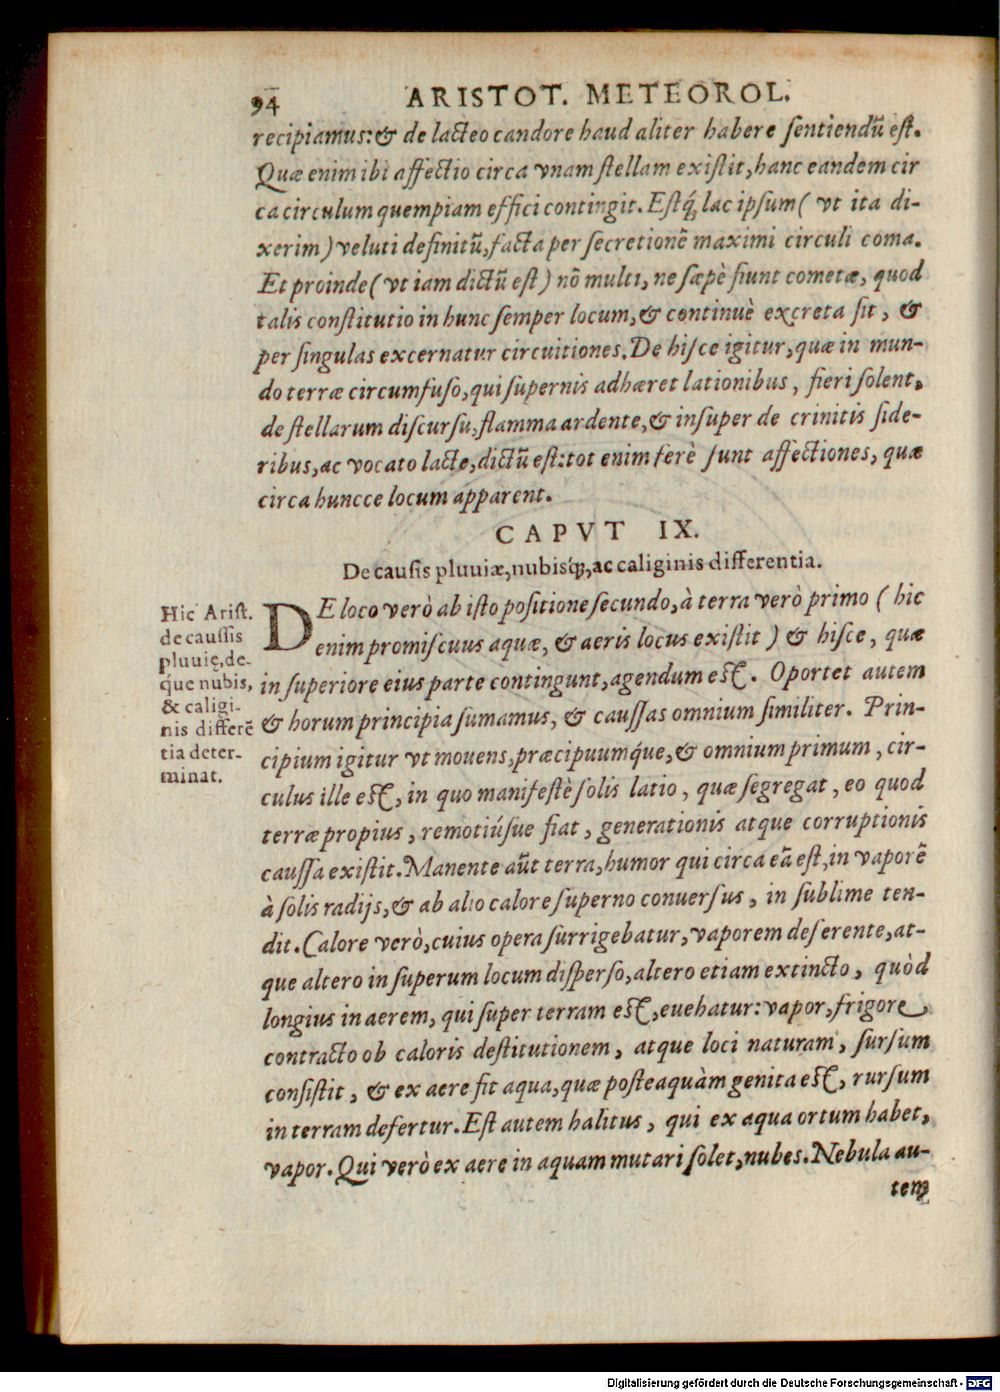 94 ARISTOT. METEOROL.
recipiamus: & de lacteo candore haud aliter habere ſentiendũ eſt.
Quæ enim ibi affectio circa vnam ſtellam exiſtit, hanc eandem cir
ca circulum quempiam effici contingit. Eſtq́; lac ipſum ( vt ita di-
xerim ) veluti definitũ, facta per ſecretionẽ maximi circuli coma.
Et proinde ( vt iam dictũ eſt ) nõ multi, ne ſæpè fiunt cometæ, quod
talis conſtitutio in hunc ſemper locum, & continuè excreta ſit, &
per ſingulas excernatur circuitiones. De hiſce igitur, quæ in mun-
do terræ circumfuſo, qui ſupernis adhæret lationibus, fieri ſolent,
de ſtellarum diſcurſu, flamma ardente, & inſuper de crinitis ſide-
ribus, ac vocato lacte, dictũ eſt: tot enim ferè ſunt affectiones, quæ
circa huncce locum apparent.
CAPVT IX.
De cauſis pluuiæ, nubisq́;, ac caliginis differentia.
Hic Ariſt.
de cauſſis
pluuię, de-
que nubis,
& caligi-
nis differẽ
tia deter-
minat.
DE loco verò ab iſto poſitione ſecundo, à terra verò primo ( hic
enim promiſcuus aquæ, & aeris locus exiſtit ) & hiſce, quæ
in ſuperiore eius parte contingunt, agendum eſt. Oportet autem
& horum principia ſumamus, & cauſſas omnium ſimiliter. Prin-
cipium igitur vt mouens, præcipuumq́ue, & omnium primum, cir-
culus ille eſt, in quo manifeſtè ſolis latio, quæ ſegregat, eo quod
terræ propius, remotiúſue fiat, generationis atque corruptionis
cauſſa exiſtit. Manente aũt terra, humor qui circa eã eſt, in vaporẽ
à ſolis radijs, & ab alio calore ſuperno conuerſus, in ſublime ten-
dit. Calore verò, cuius opera ſurrigebatur, vaporem deferente, at-
que altero in ſuperum locum diſperſo, altero etiam extincto, quòd
longius in aerem, qui ſuper terram eſt, euehatur: vapor, frigore
contracto ob caloris deſtitutionem, atque loci naturam, ſurſum
conſiſtit, & ex aere fit aqua, quæ poſteaquàm genita eſt, rurſum
in terram defertur. Eſt autem halitus, qui ex aqua ortum habet,
vapor. Qui verò ex aere in aquam mutari ſolet, nubes. Nebula au-
tem
Digitalisierung gefördert durch die Deutsche Forschungsgemeinschaft - DFG